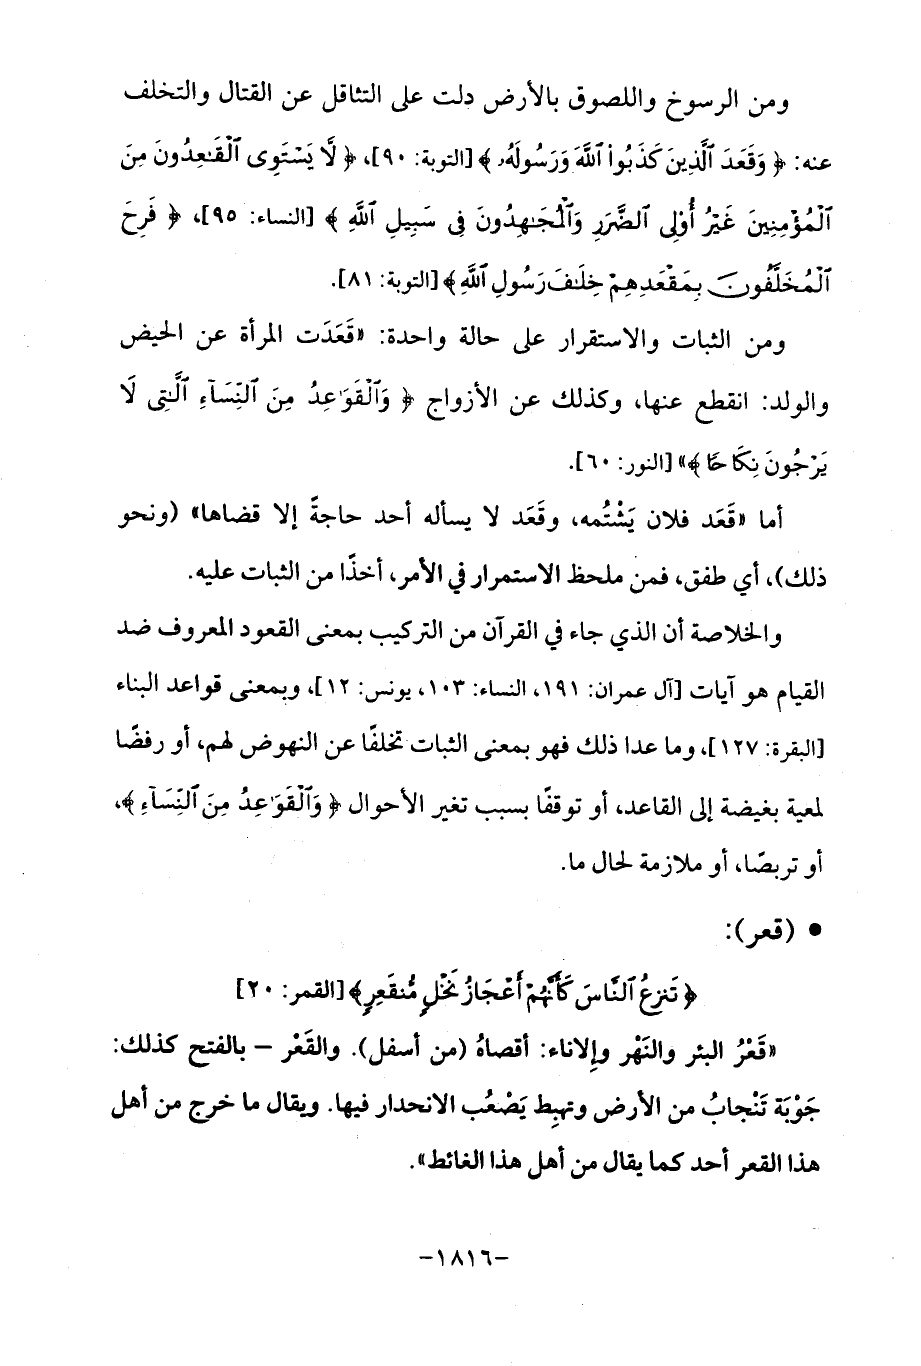 ومن الرسوخ واللصوق بالأرض دلت على التثاقل عن القتال والتخلف
عنه: ﴿ وَقَعَدَ ٱلَّذِينَ كَذَبُوا۟ ٱللَّهَ وَرَسُولَهُۥ ﴾ [التوبة: ٩٠]، ﴿ لَّا يَسْتَوِى ٱلْقَـٰعِدُونَ مِنَ
ٱلْمُؤْمِنِينَ غَيْرُ أُو۟لِى ٱلضَّرَرِ وَٱلْمُجَـٰهِدُونَ فِى سَبِيلِ ٱللَّهِ ﴾ [النساء: ٩٥]، ﴿ فَرِحَ
ٱلْمُخَلَّفُونَ بِمَقْعَدِهِمْ خِلَـٰفَ رَسُولِ ٱللَّهِ ﴾ [التوبة: ٨١].
ومن الثبات والاستقرار على حالة واحدة: «قَعَدَت المرأة عن الحيض
والولد: انقطع عنها، وكذلك عن الأزواج ﴿ وَٱلْقَوَٰعِدُ مِنَ ٱلنِّسَآءِ ٱلَّـٰتِى لَا
يَرْجُونَ نِكَاحًا ﴾» [النور: ٦٠].
أما «قَعَد فلان يَشْتُمه، وقَعَد لا يسأله أحد حاجةً إلا قضاها» (ونحو
ذلك)، أي طفق، فمن ملحظ الاستمرار في الأمر، أخذًا من الثبات عليه.
والخلاصة أن الذي جاء في القرآن من التركيب بمعنى القعود المعروف ضد
القيام هو آيات [آل عمران: ١٩١، النساء: ١٠٣، يونس: ١٢]، وبمعنى قواعد البناء
[البقرة: ١٢٧]، وما عدا ذلك فهو بمعنى الثبات تخلفًا عن النهوض لهم، أو رفضًا
لمعية بغيضة إلى القاعد، أو توقفًا بسبب تغير الأحوال ﴿ وَٱلْقَوَٰعِدُ مِنَ ٱلنِّسَآءِ ﴾،
أو تربصًا، أو ملازمة لحال ما.
• (قعر):
﴿ تَنزِعُ ٱلنَّاسَ كَأَنَّهُمْ أَعْجَازُ نَخْلٍ مُّنقَعِرٍ ﴾ [القمر: ٢٠]
«قَعْرُ البئر والنَهْر والإناء: أقصاهُ (من أسفل). والقَعْر – بالفتح كذلك:
جَوْبَة تَنْجابُ من الأرض وتهبِط يَصْعُب الانحدار فيها. ويقال ما خرج من أهل
هذا القعر أحد كما يقال من أهل هذا الغائط».
-١٨١٦-